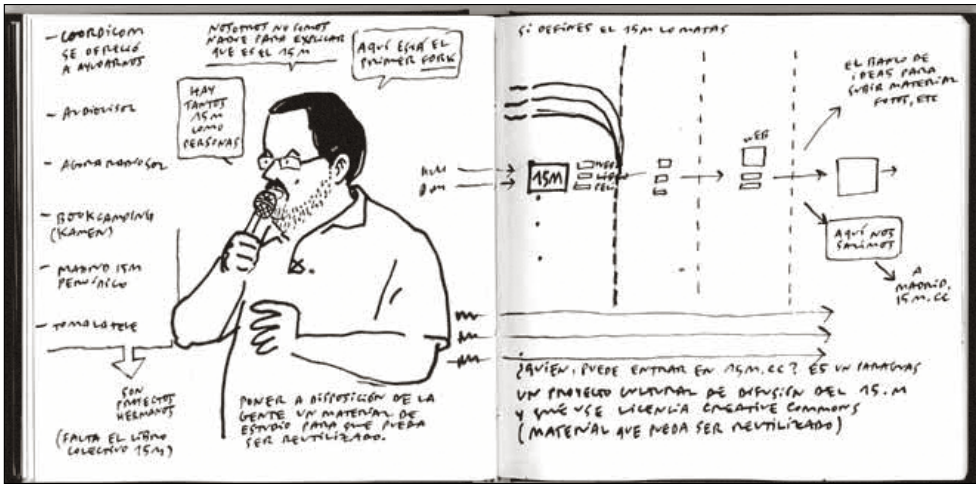 - COORDICOM
SE OFRECIÓ
A AYUDARNOS
- AUDIOVISOL
- AGORA RADIO SOL
- BOOKCAMPING
(KAMEN)
- MADRID 15M
PERIÓDICO
- TOMALATELE
SON
PROYECTOS
HERMANOS
(FALTA EL LIBRO
COLECTIVO 15M)
NOSOTROS NO SOMOS
NADIE PARA EXPLICAR
QUE ES EL 15M
AQUÍ ESTÁ EL
PRIMER FORK
HAY
TANTOS
15M
COMO
PERSONAS
PONER A DISPOSICIÓN DE LA
GENTE UN MATERIAL DE
ESTUDIO PARA QUE PUEDA
SER REUTILIZADO.
SI DEFINES EL 15M LO MATAS
15M
WEB
EL BANCO DE
IDEAS PARA
SUBIR MATERIAL
FOTOS, ETC
AQUÍ NOS
SALIMOS
A
MADRID.
15M.CC
¿QUIEN, PUEDE ENTRAR EN 15M.CC? ES UN PARAGUAS
UN PROYECTO CULTURAL DE DIFUSIÓN DEL 15.M
Y QUE USE LICENCIA CREATIVE COMMONS
(MATERIAL QUE PUEDA SER REUTILIZADO)